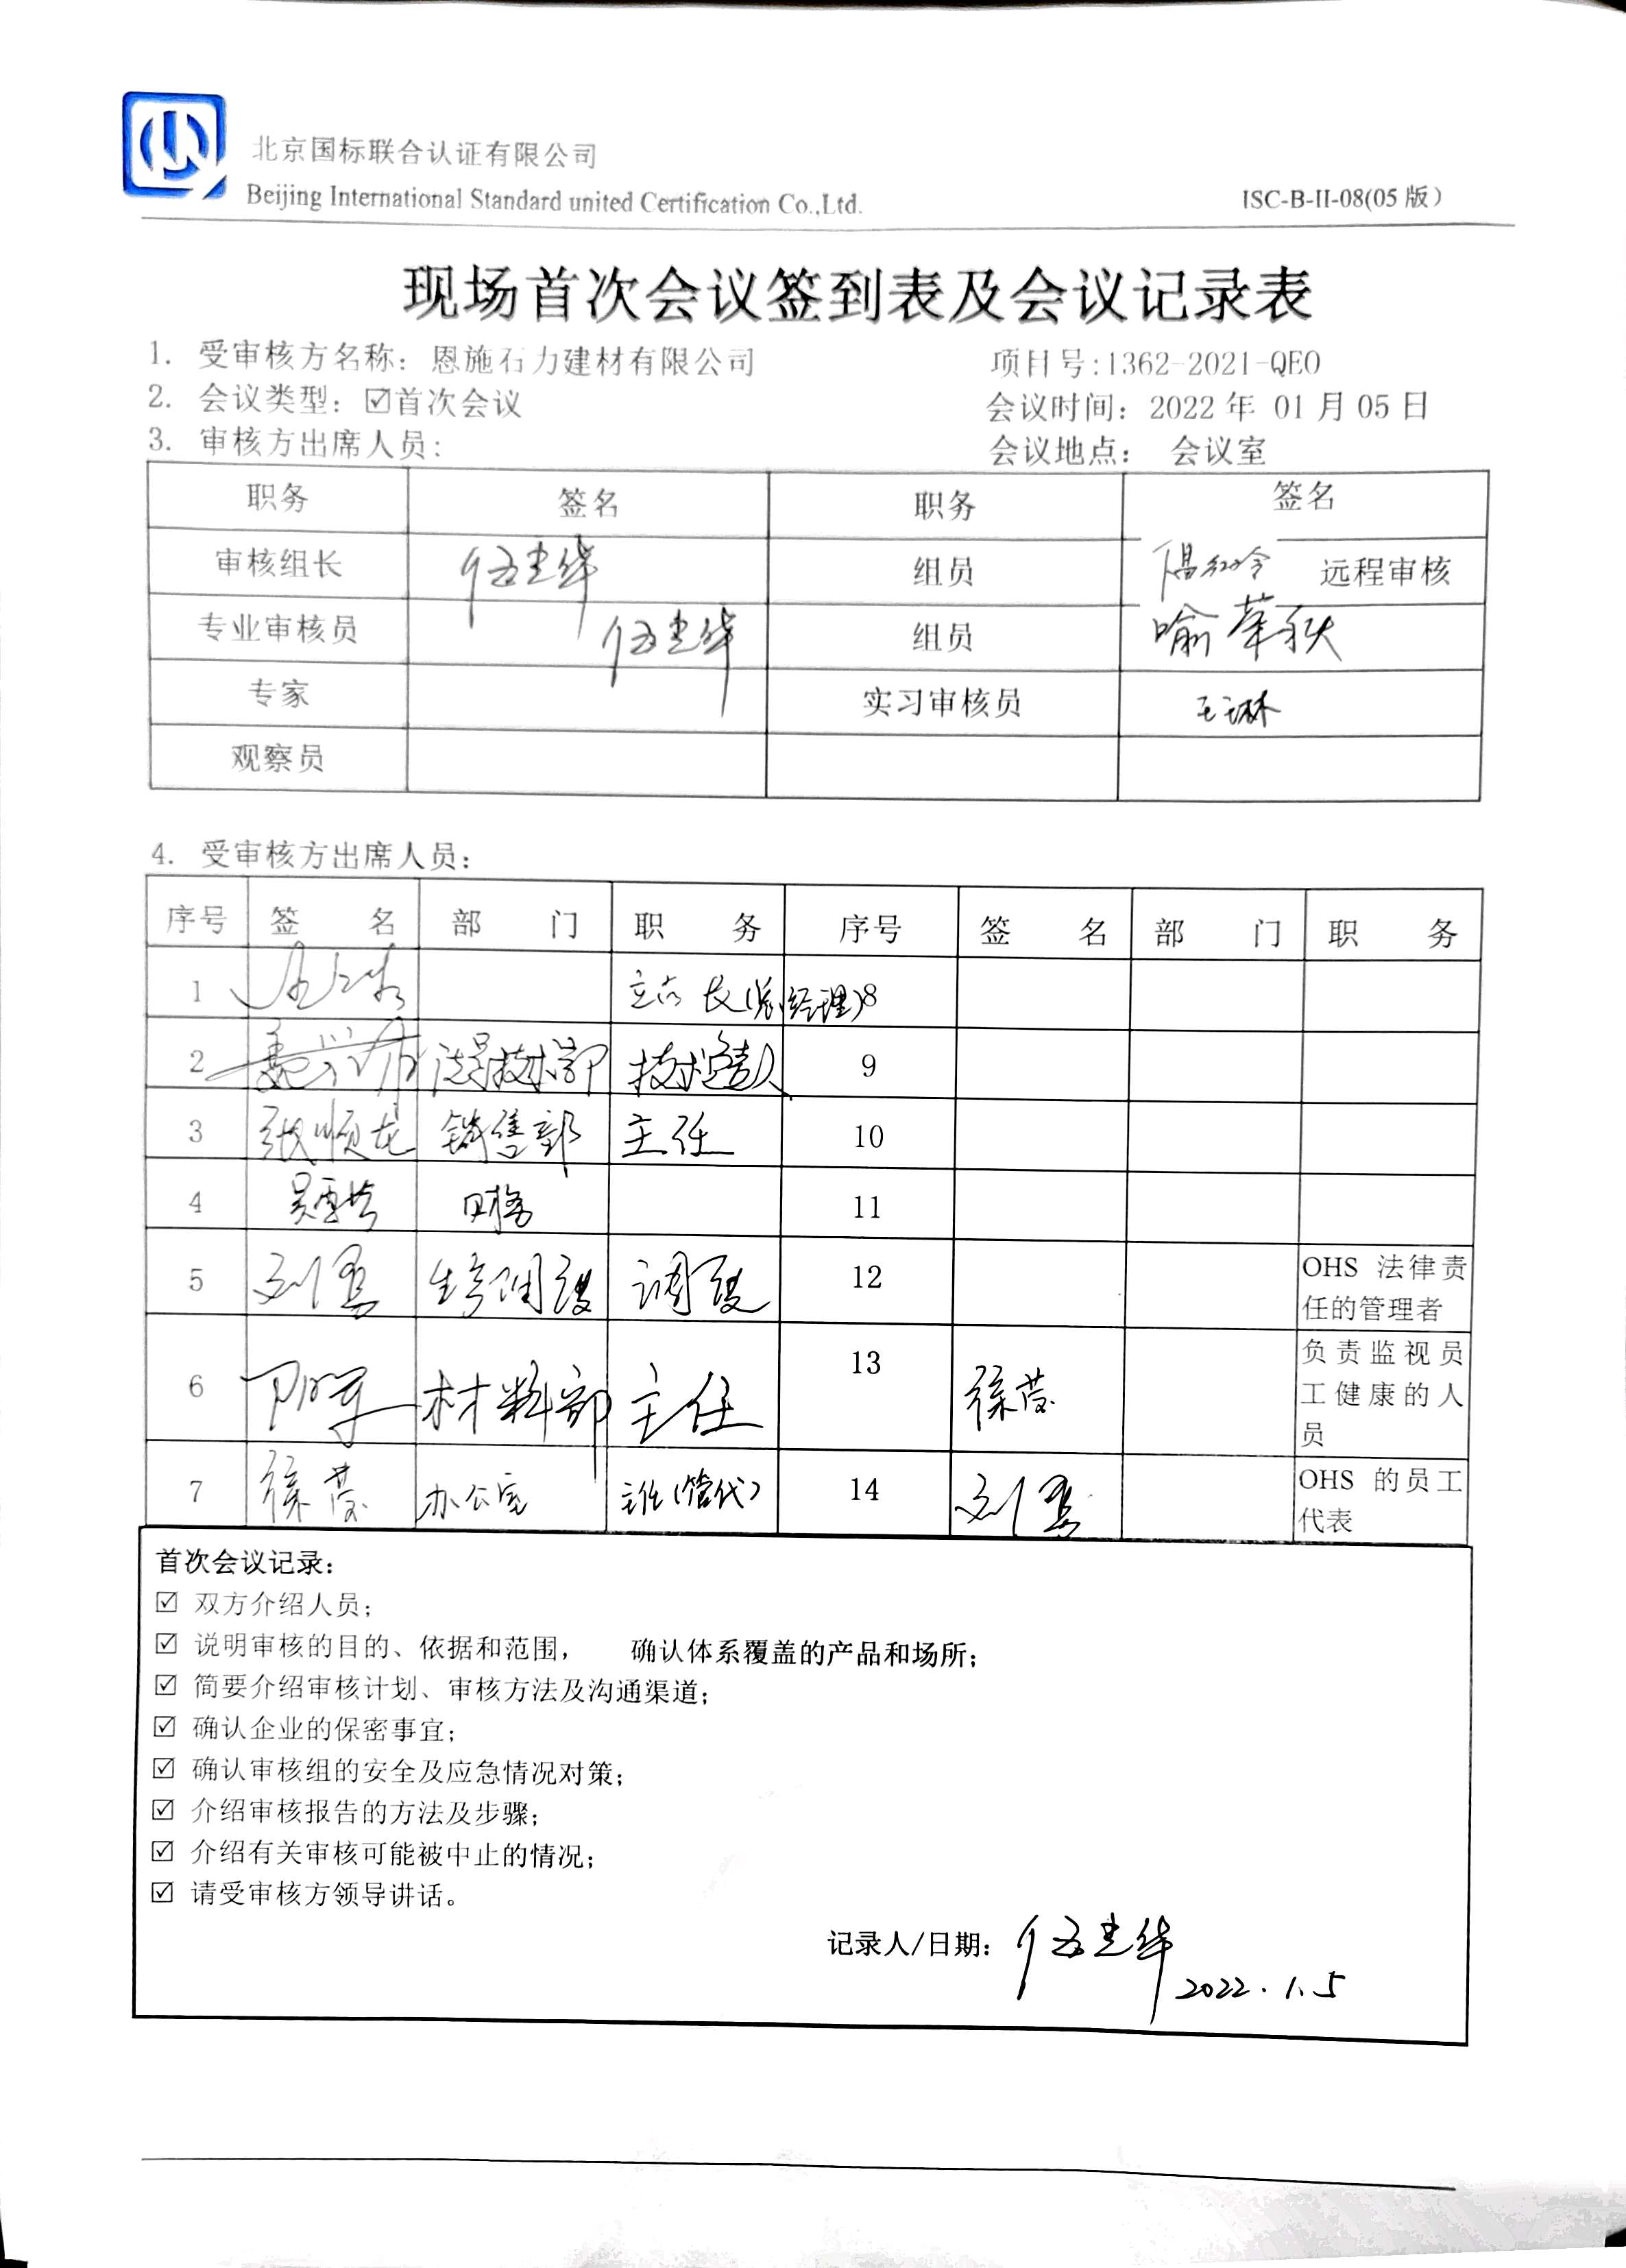 北京国标联合认证有限公司
Beijing International Standard united Certification Co.,Ltd.
ISC-B-II-08(05 版)
现场首次会议签到表及会议记录表
1. 受审核方名称: 恩施石力建材有限公司 项目号:1362-2021-QEO
2. 会议类型: ☑首次会议 会议时间: 2022 年 01 月 05 日
3. 审核方出席人员: 会议地点: 会议室
职务 签名 职务 签名
审核组长 伍光华 组员 远程审核
专业审核员 伍光华 组员 喻荣秋
专家 实习审核员 王琳
观察员
4. 受审核方出席人员:
序号 签 名 部 门 职 务 序号 签 名 部 门 职 务
1 站长(总经理) 8
2 技术部 技术负责人 9
3 张顺龙 销售部 主任 10
4 财务 11
5 生产调度 调度 12 OHS 法律责
任的管理者
6 材料部 主任 13 徐莹 负责监视员
工健康的人
员
7 徐莹 办公室 主任(管代) 14 OHS 的员工
代表
首次会议记录:
☑ 双方介绍人员;
☑ 说明审核的目的、依据和范围, 确认体系覆盖的产品和场所;
☑ 简要介绍审核计划、审核方法及沟通渠道;
☑ 确认企业的保密事宜;
☑ 确认审核组的安全及应急情况对策;
☑ 介绍审核报告的方法及步骤;
☑ 介绍有关审核可能被中止的情况;
☑ 请受审核方领导讲话。
记录人/日期: 伍光华
2022.1.5